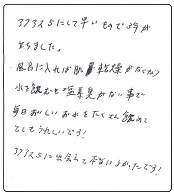 アクアス5にして早いもので3年が
たちました。
風呂に入れば肌の乾燥がなくなり
水を飲むと塩素臭がない事で
毎日おいしいお水をたくさん飲めて
とてもうれしいです!
アクアス5に出会えて本当によかったです!